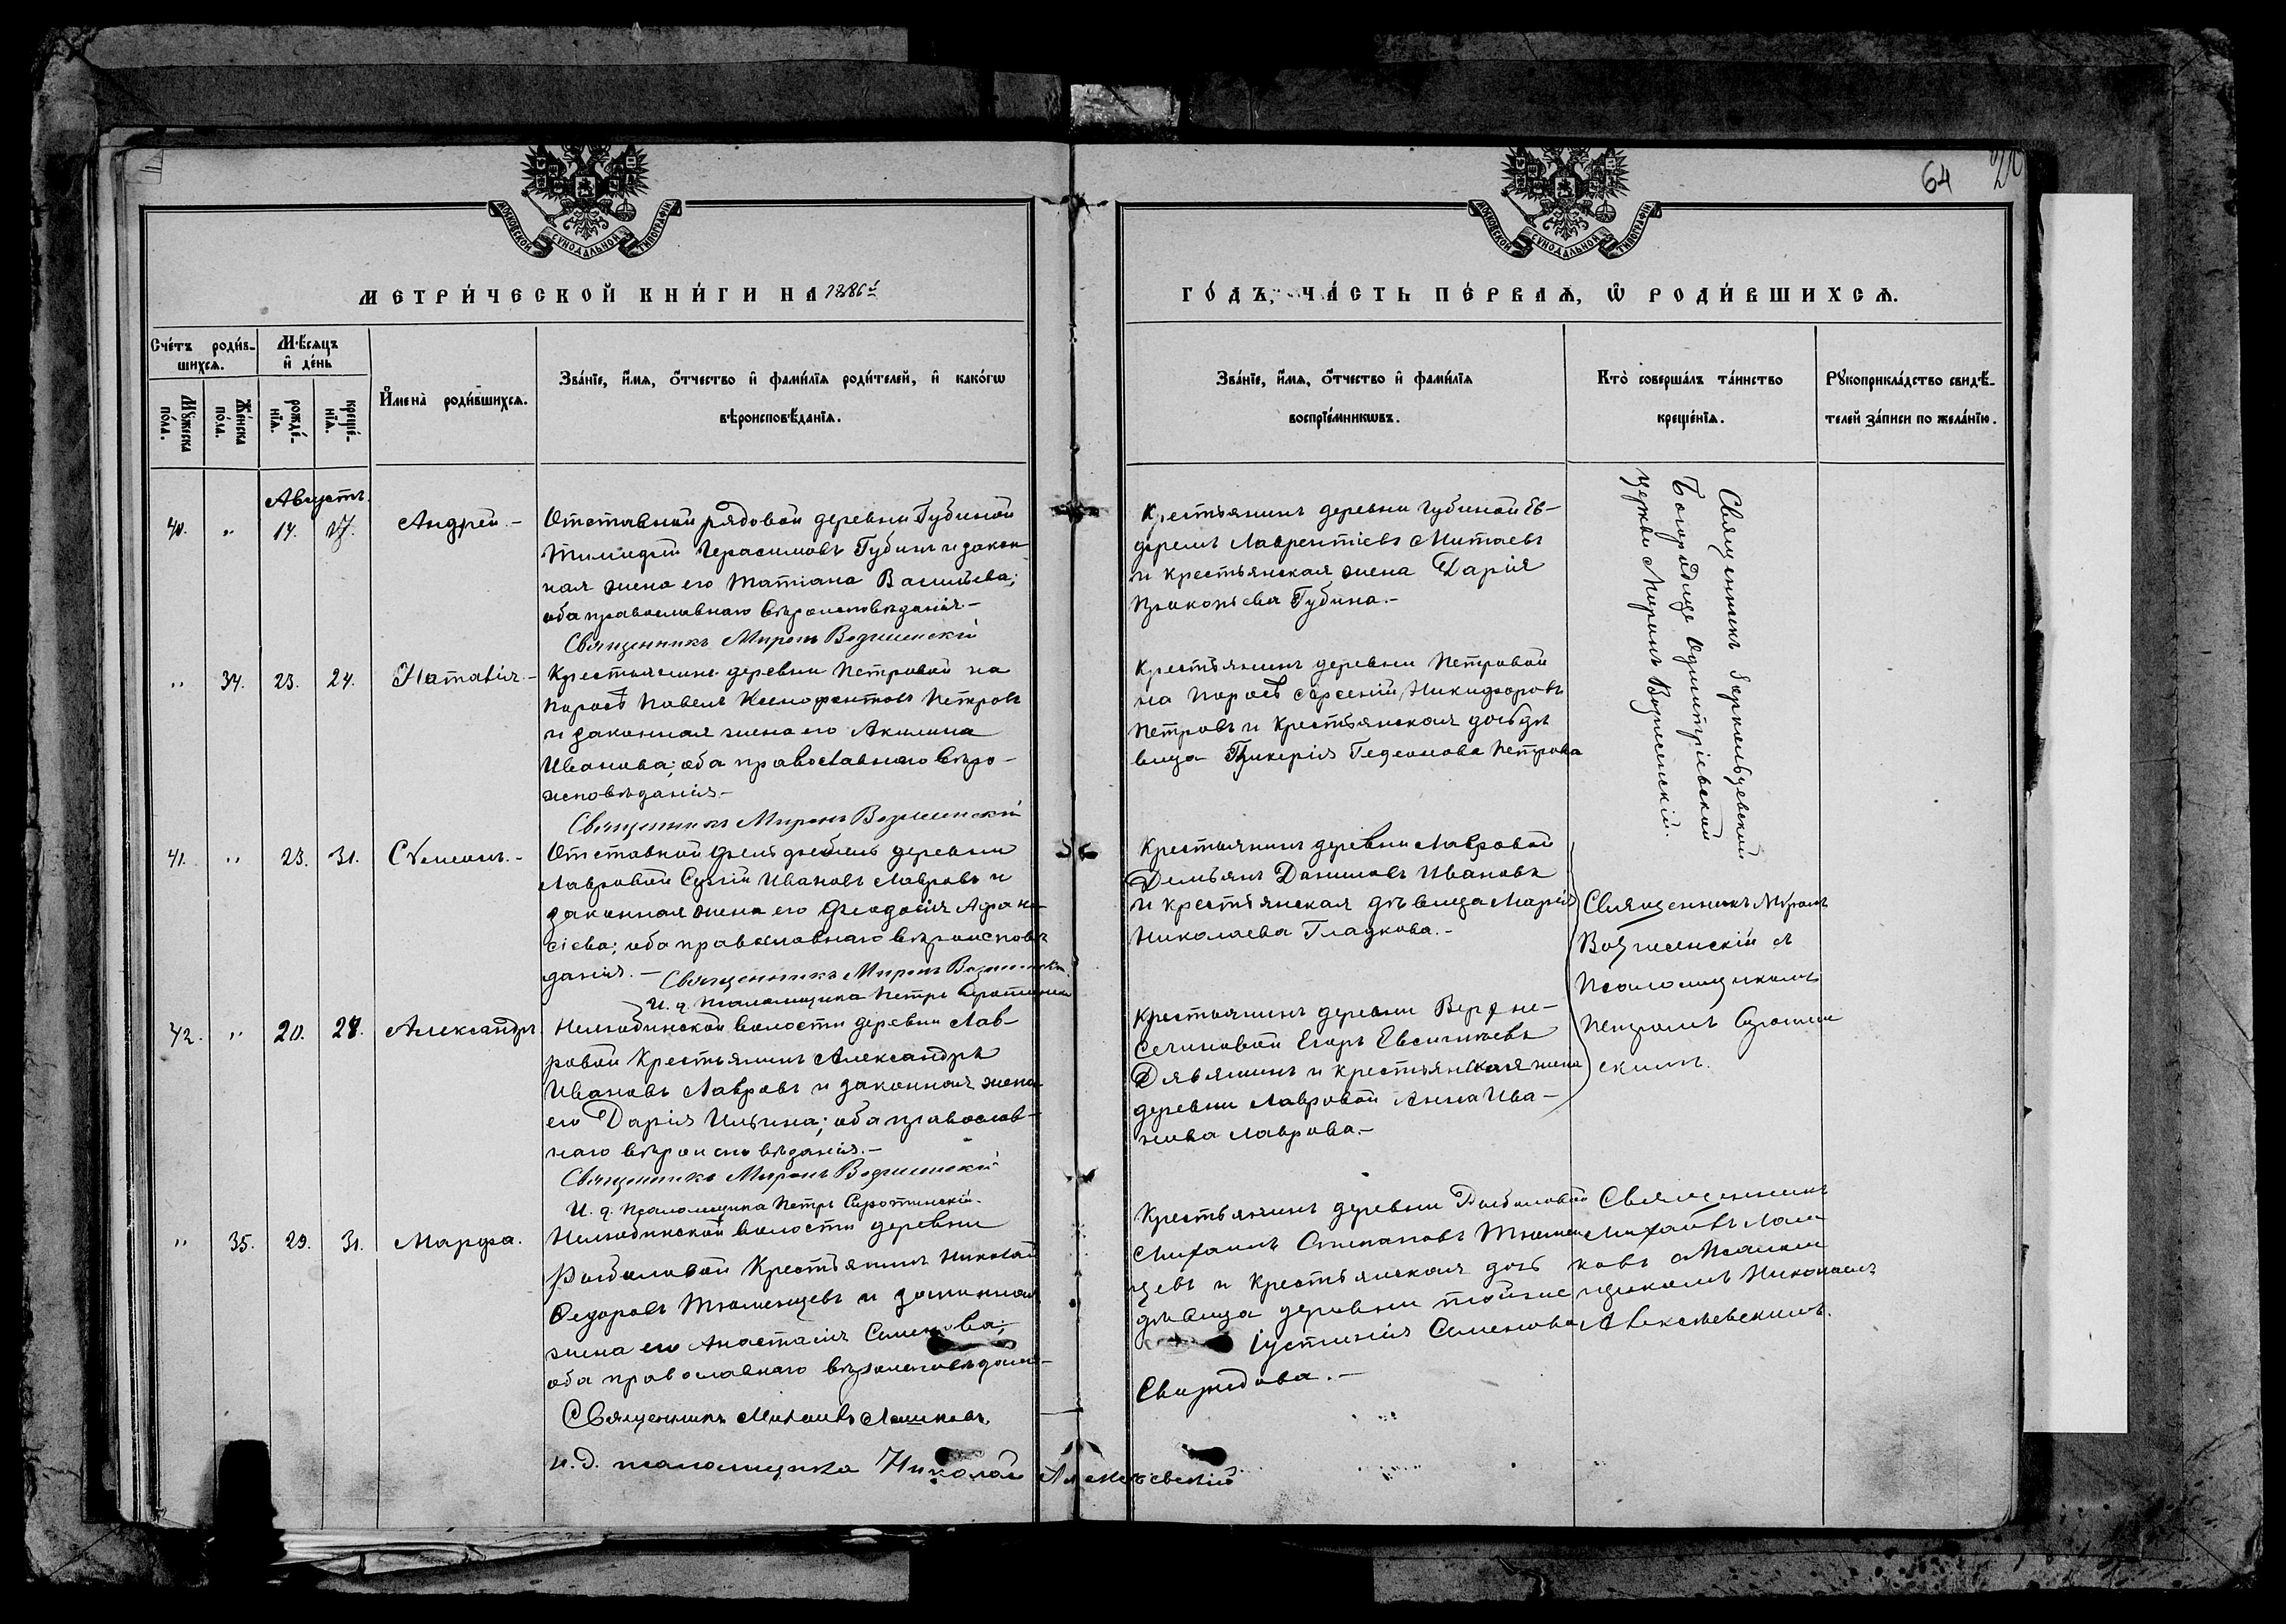 64
МОСКОВСКОЙ СѴНОДАЛЬНОЙ ТИПОГРАФІИ
МОСКОВСКОЙ СѴНОДАЛЬНОЙ ТИПОГРАФІИ
МЕТРИ́ЧЕСКОЙ КНИ́ГИ НА 1886й
ГО́ДЪ, ЧА́СТЬ ПЕ́РВАѦ, Ѡ РОДИ́ВШИХСѦ.
Сче́тъ роди́вшихсѧ.
Мꙋ́жеска по́ла.
Же́нска по́ла.
Мѣ́сѧцъ и҆ де́нь
рожде́нїѧ.
креще́нїѧ.
И҆мена̀ роди́вшихсѧ.
Зва́нїе, и҆́мѧ, ѻ҆́тчество и҆ фами́лїѧ роди́телей, и҆ како́гѡ
вѣроисповѣ́данїѧ.
Зва́нїе, и҆́мѧ, ѻ҆́тчество и҆ фами́лїѧ
воспрїе́мникѡвъ.
Кто̀ соверша́лъ та́инство
креще́нїѧ.
Рꙋкоприкла́дство свидѣ́-
телей за́писи по жела́нїю.
Августъ.
40. " 14. 17. Андрей.-
Отставной рядовой деревни Губиной
Тимофей Герасимовъ Губинъ и закон
ная жена его Татіана Васильева;
оба православнаго вѣроисповѣданія.-
Священникъ Миронъ Вознесенскій
Крестьянинъ деревни Губиной Еѳ-
ремъ Лаврентіевъ Митаевъ
и крестьянская жена Дарія
Прокопьева Губина.-
Священникъ
Богородице Одигитріевской
церкви Миронъ Вознесенскій.
" 34. 23. 24. Наталія.-
Крестьянинъ деревни Петровой на
Поросѣ Павелъ Ксенофонтовъ Петровъ
и законная жена его Акилина
Иванова; оба православнаго вѣро-
исповѣданія.-
Священникъ Миронъ Вознесенскій
Крестьянинъ деревни Петровой
на Поросѣ Арсеній Никифоровъ
Петровъ и крестьянская дочь дѣ
вица Гликерія Гедеонова Петрова
41. " 23. 31. Сѵмеонъ.-
Отставной фельдфебель деревни
Лавровой Сергій Ивановъ Лавровъ и
законная жена его Феодосія Афана-
сіева; оба православнаго вѣроисповѣ
данія.- Священникъ Миронъ Вознесенскій.
И. д. псаломщика Петръ Сиротинскій
Крестьянинъ деревни Лавровой
Демьянъ Даниловъ Ивановъ
и крестьянская дѣвица Марія
Николаева Гладкова.-
Священникъ Миронъ
Вознесенскій съ
Псаломщикомъ
Петромъ Сиротин
скимъ.
42. " 20. 28. Александръ.
Нелюбинской волости деревни Лав-
ровой Крестьянинъ Александръ
Ивановъ Лавровъ и законная жена
его Дарія Ильина; оба православ-
наго вѣроисповѣданія.-
Священникъ Миронъ Вознесенскій
И. д. Псаломщика Петръ Сиротинскій.
Крестьянинъ деревни Верхне-
Сечиновой Егоръ Евсигніевъ
и крестьянская жена
деревни Лавровой Анна Ива-
нова Лаврова.-
" 35. 29. 31. Марфа.
Нелюбинской волости деревни
Рыбаловой Крестьянинъ Николай
Ѳедоровъ Тюменцевъ и законная
жена его Анастасія Семенова;
оба православнаго вѣроисповѣдан-
Священникъ Михаилъ Лашковъ.
и. д. псаломщика Николай Алексѣевскій
Крестьянинъ деревни Рыбаловой
Михаилъ Степановъ Тюмен
цевъ и Крестьянская дочь
дѣвица деревни тойже
Іустинія Семенова
Свиридова.-
Священникъ
Михаилъ Лаш
ковъ с Псалом
щикомъ Николаемъ
Алексѣевскимъ.